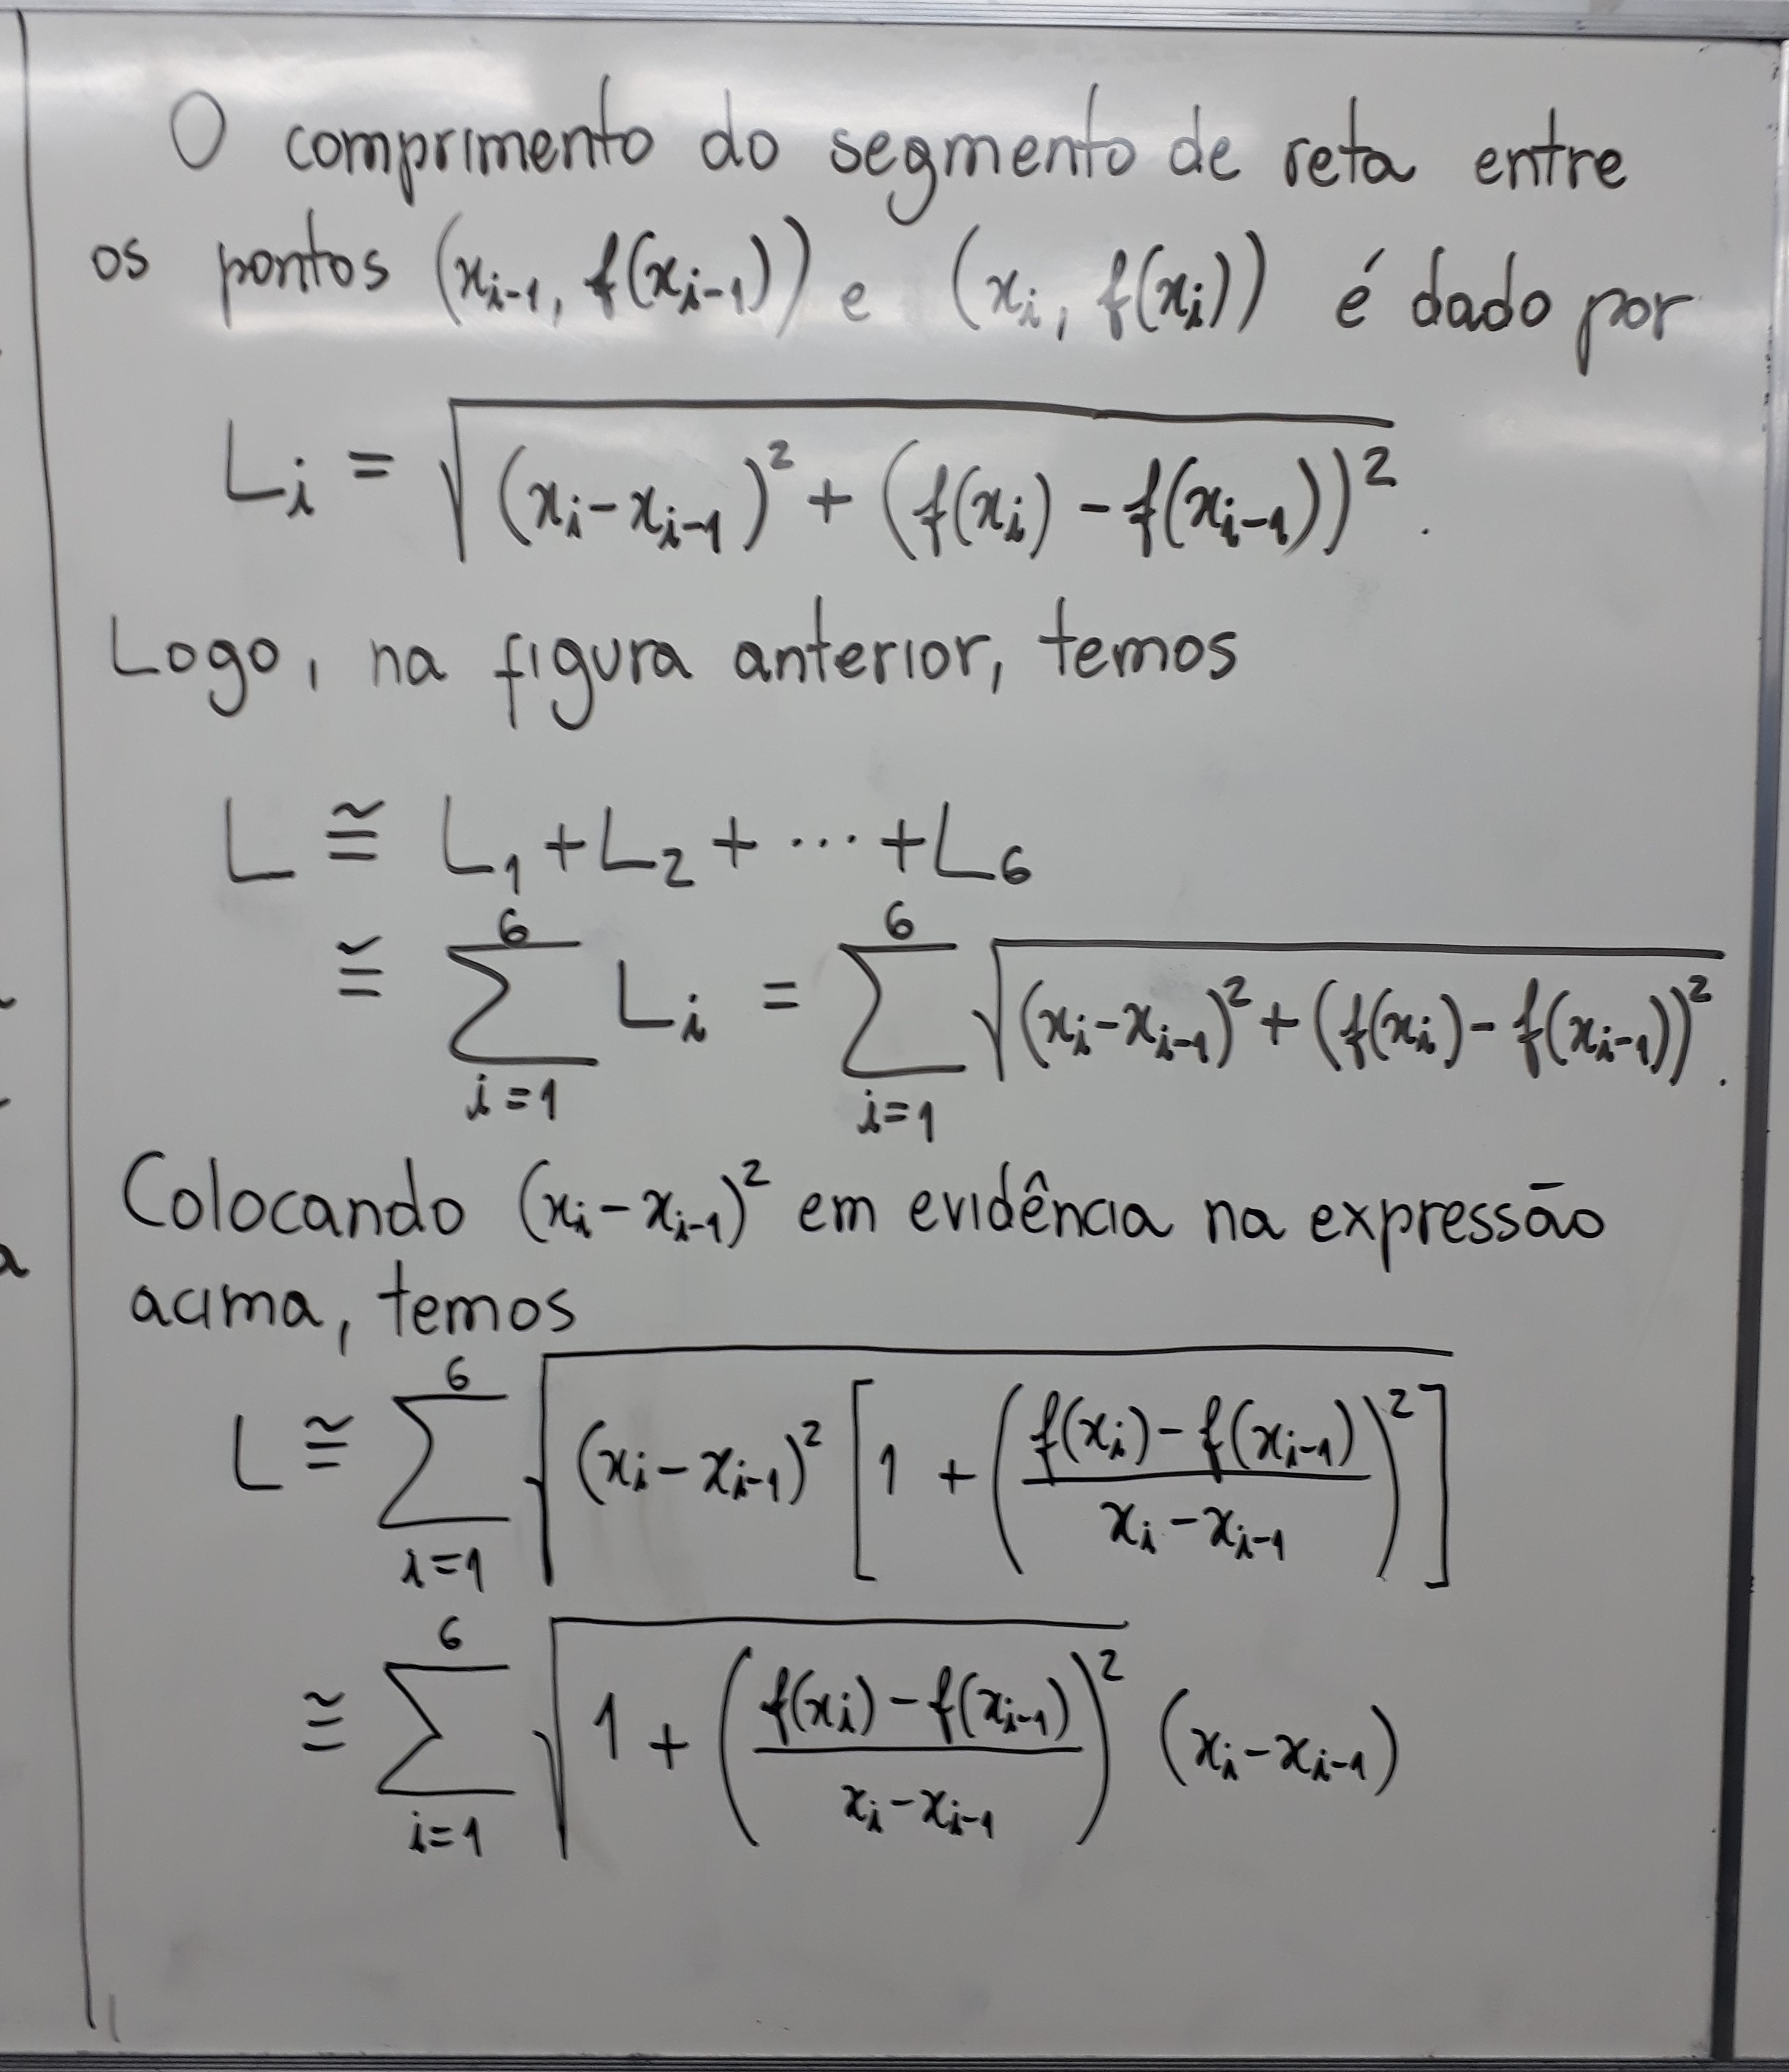 O comprimento do segmento de reta entre
os pontos (x_{i-1}, f(x_{i-1})) e (x_i, f(x_i)) é dado por
L_i = √((x_i - x_{i-1})² + (f(x_i) - f(x_{i-1}))²).
Logo, na figura anterior, temos
L ≅ L_1 + L_2 + ⋯ + L_6
≅ ∑_{i=1}^{6} L_i = ∑_{i=1}^{6} √((x_i - x_{i-1})² + (f(x_i) - f(x_{i-1}))²).
Colocando (x_i - x_{i-1})² em evidência na expressão
acima, temos
L ≅ ∑_{i=1}^{6} √((x_i - x_{i-1})² [1 + ((f(x_i) - f(x_{i-1}))/(x_i - x_{i-1}))²])
≅ ∑_{i=1}^{6} √(1 + ((f(x_i) - f(x_{i-1}))/(x_i - x_{i-1}))²) (x_i - x_{i-1})